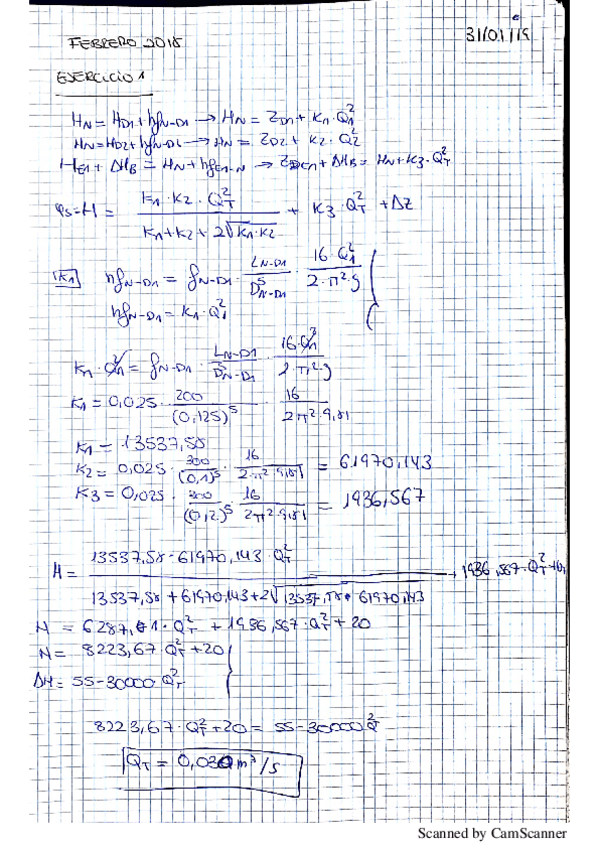 FEBRERO 2015
31/01/19
EJERCICIO 1
H_N = H_D1 + hf_N-D1 → H_N = Z_D1 + K1 · Q1²
H_N = H_D2 + hf_N-D2 → H_N = Z_D2 + K2 · Q2²
H_E1 + ΔH_B = H_N + hf_E1-N → + ΔH_B = H_N + K3 · Q_T²
H = K1 · K2 · Q_T² / K1 + K2 + 2√K1·K2 + K3 · Q_T² + ΔZ
K1 hf_N-D1 = f_N-D1 · L_N-D1 / D⁵_N-D1 · 16 · Q1² / 2 · π² · g
hf_N-D1 = K1 · Q1²
K1 · Q1² = f_N-D1 · L_N-D1 / D⁵_N-D1 · 16 · Q1² / 2 · π² · g
K1 = 0,025 · 200 / (0,125)⁵ · 16 / 2π² · 9,81
K1 = 13537,58
K2 = 0,025 · 300 / (0,1)⁵ · 16 / 2·π²·9,81 = 61970,143
K3 = 0,025 · 300 / (0,2)⁵ · 16 / 2π²·9,81 = 1936,567
H = 13537,58 · 61970,143 · Q_T² / 13537,58 + 61970,143 + 2√13537,58 · 61970,143 + 1936,567 · Q_T² +
H = 6287,1 · Q_T² + 1936,567 · Q_T² + 20
H = 8223,67 · Q_T² + 20
ΔH = 55 - 30000 Q_T²
8223,67 · Q_T² + 20 = 55 - 30000 Q_T²
Q_T = 0,030 m³/s
Scanned by CamScanner